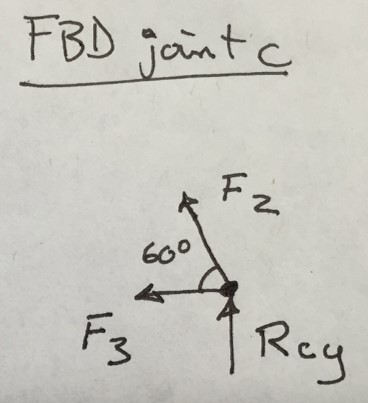 FBD joint C
F2
60°
F3
Rcy